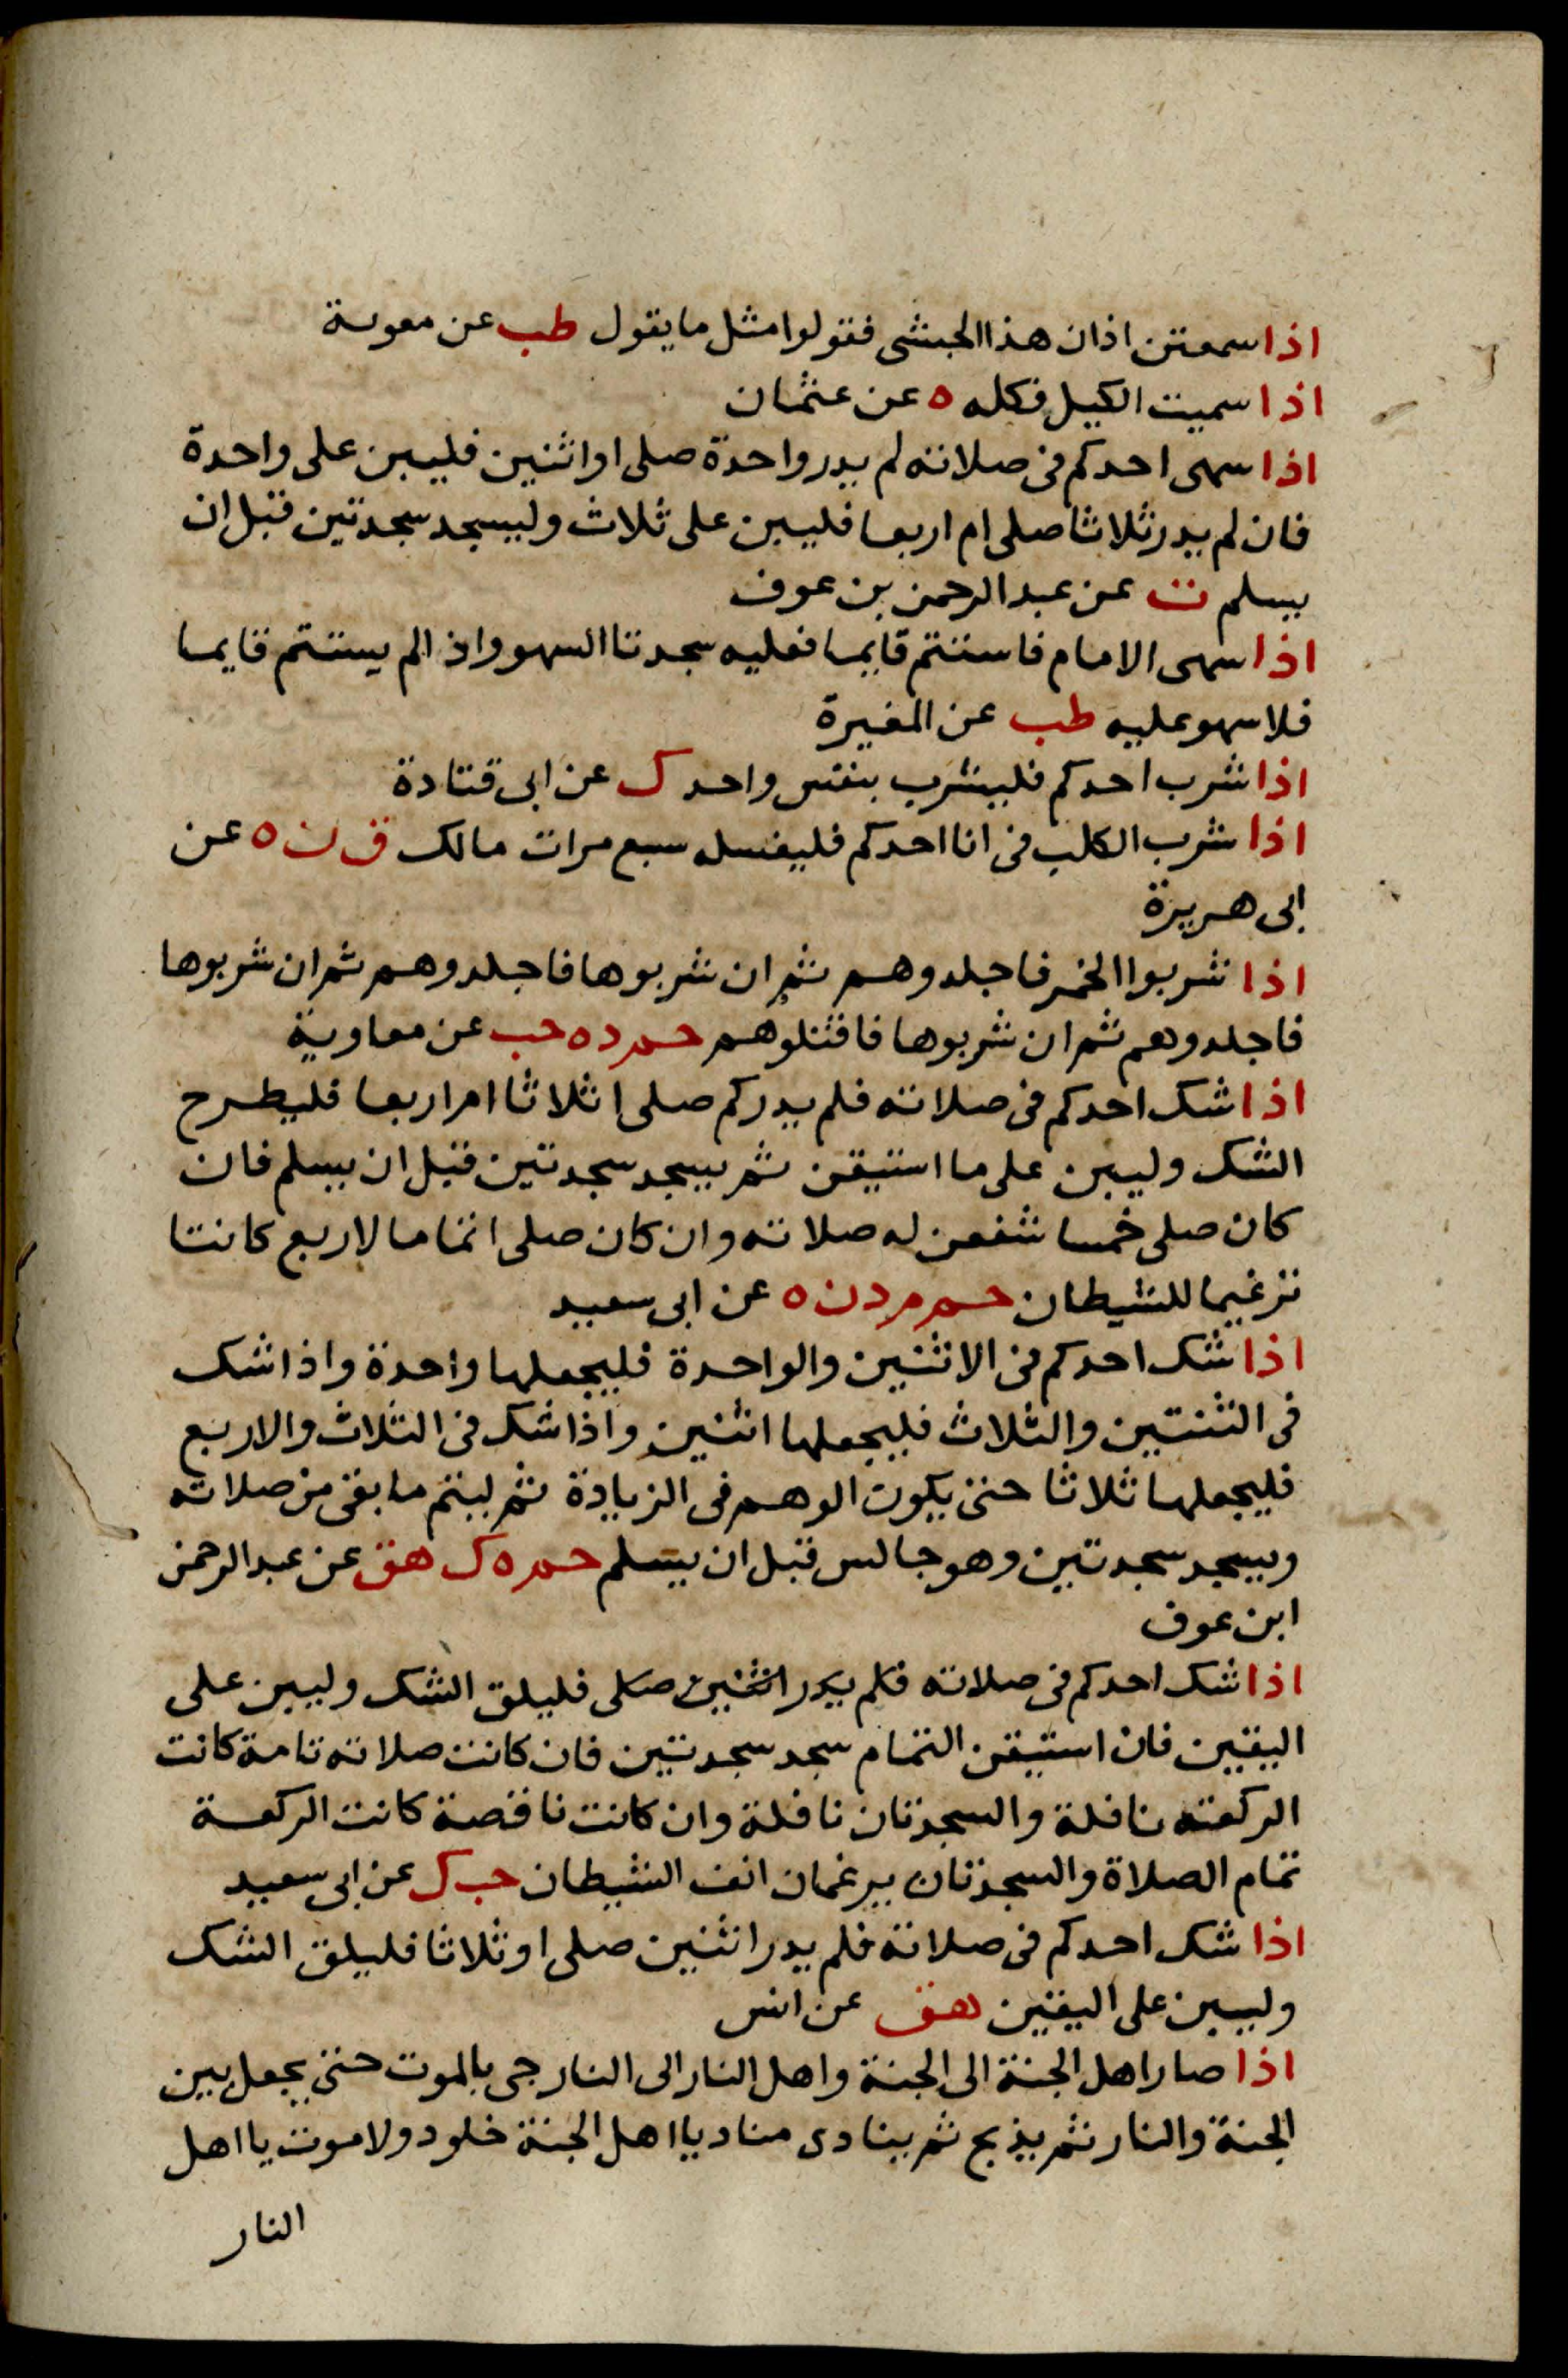 اذا سمعتن اذان هذا الحبشى فقولوا مثل ما يقول طب عن معوية
اذا سميت الكيل فكله ه عن عثمان
اذا سهى احدكم فى صلاته لم يدر واحدة صلى او اثنين فليبن على واحدة
فان لم يدر ثلاثا صلى ام اربعا فليبن على ثلاث وليسجد سجدتين قبل ان
يسلم ت عن عبد الرحمن بن عوف
اذا سهى الامام فاستتم قايما فعليه سجدتا السهو واذا لم يستتم قايما
فلا سهو عليه طب عن المغيرة
اذا شرب احدكم فليشرب بنفس واحد ك عن ابى قتادة
اذا شرب الكلب فى انا احدكم فليغسله سبع مرات مالك ق ن ه عن
ابى هريرة
اذا شربوا الخمر فاجلدوهم ثم ان شربوها فاجلدوهم ثم ان شربوها
فاجلدوهم ثم ان شربوها فاقتلوهم حم د ه حب عن معاوية
اذا شك احدكم فى صلاته فلم يدر كم صلى اثلاثا ام اربعا فليطرح
الشك وليبن على ما استيقن ثم يسجد سجدتين قبل ان يسلم فان
كان صلى خمسا شفعن له صلاته وان كان صلى اتماما لاربع كانتا
ترغيما للشيطان حم م د ن ه عن ابى سعيد
اذا شك احدكم فى الاثنين والواحدة فليجعلها واحدة واذا شك
فى الثنتين والثلاث فليجعلها اثنين واذا شك فى الثلاث والاربع
فليجعلها ثلاثا حتى يكون الوهم فى الزيادة ثم ليتم ما بقى من صلاته
ويسجد سجدتين وهو جالس قبل ان يسلم حم ه ك هق عن عبد الرحمن
ابن عوف
اذا شك احدكم فى صلاته فلم يدر اثنين صلى فليلق الشك وليبن على
اليقين فان استيقن التمام سجد سجدتين فان كانت صلاته تامة كانت
الركعته نافلة والسجدتان نافلة وان كانت ناقصة كانت الركعة
تمام الصلاة والسجدتان يرغمان انف الشيطان حب ك عن ابى سعيد
اذا شك احدكم فى صلاته فلم يدر اثنين صلى او ثلاثا فليلق الشك
وليبن على اليقين هق عن انس
اذا صار اهل الجنة الى الجنة واهل النار الى النار جى بالموت حتى يجعل بين
الجنة والنار ثم يذبح ثم ينادى مناد يا اهل الجنة خلود ولا موت يا اهل
النار